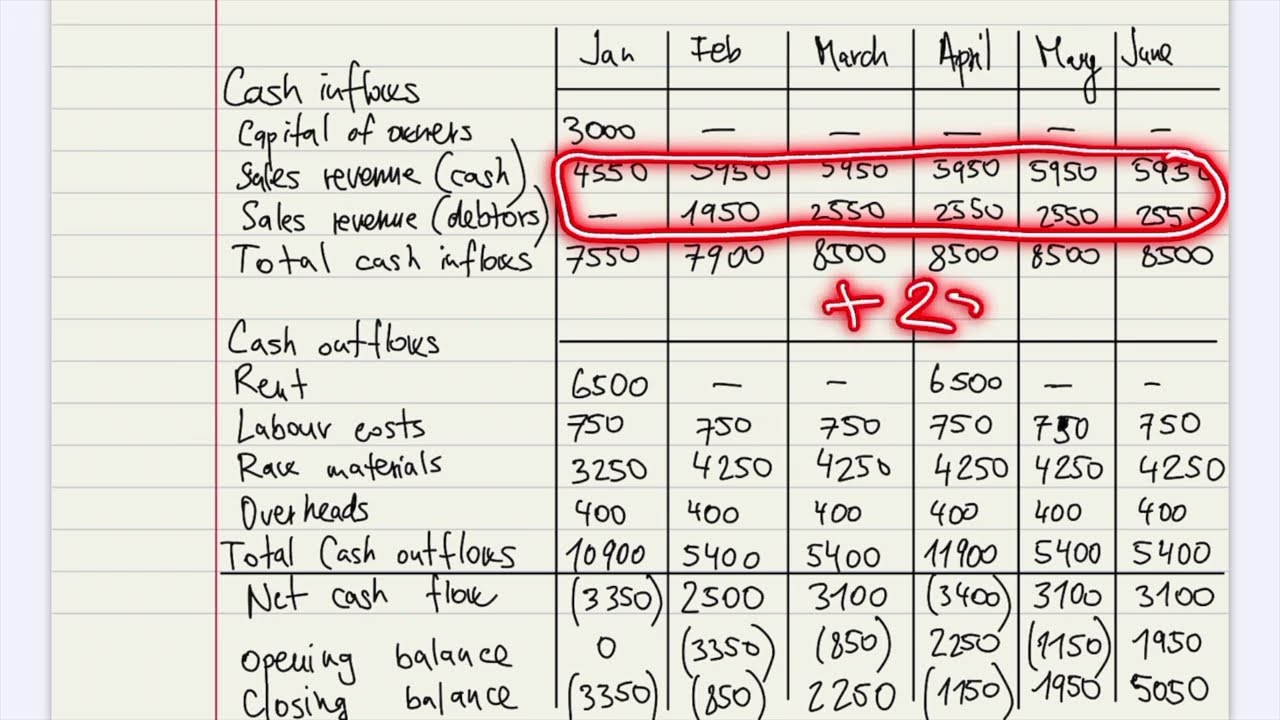 Jan Feb March April May June
Cash inflows
Capital of owners 3000 — — — — —
Sales revenue (cash) 4550 5950 5950 5950 5950 5950
Sales revenue (debtors) — 1950 2550 2550 2550 2550
Total cash inflows 7550 7900 8500 8500 8500 8500
+ 2
Cash outflows
Rent 6500 — — 6500 — —
Labour costs 750 750 750 750 750 750
Raw materials 3250 4250 4250 4250 4250 4250
Overheads 400 400 400 400 400 400
Total Cash outflows 10900 5400 5400 11900 5400 5400
Net cash flow (3350) 2500 3100 (3400) 3100 3100
opening balance 0 (3350) (850) 2250 (1150) 1950
Closing balance (3350) (850) 2250 (1150) 1950 5050